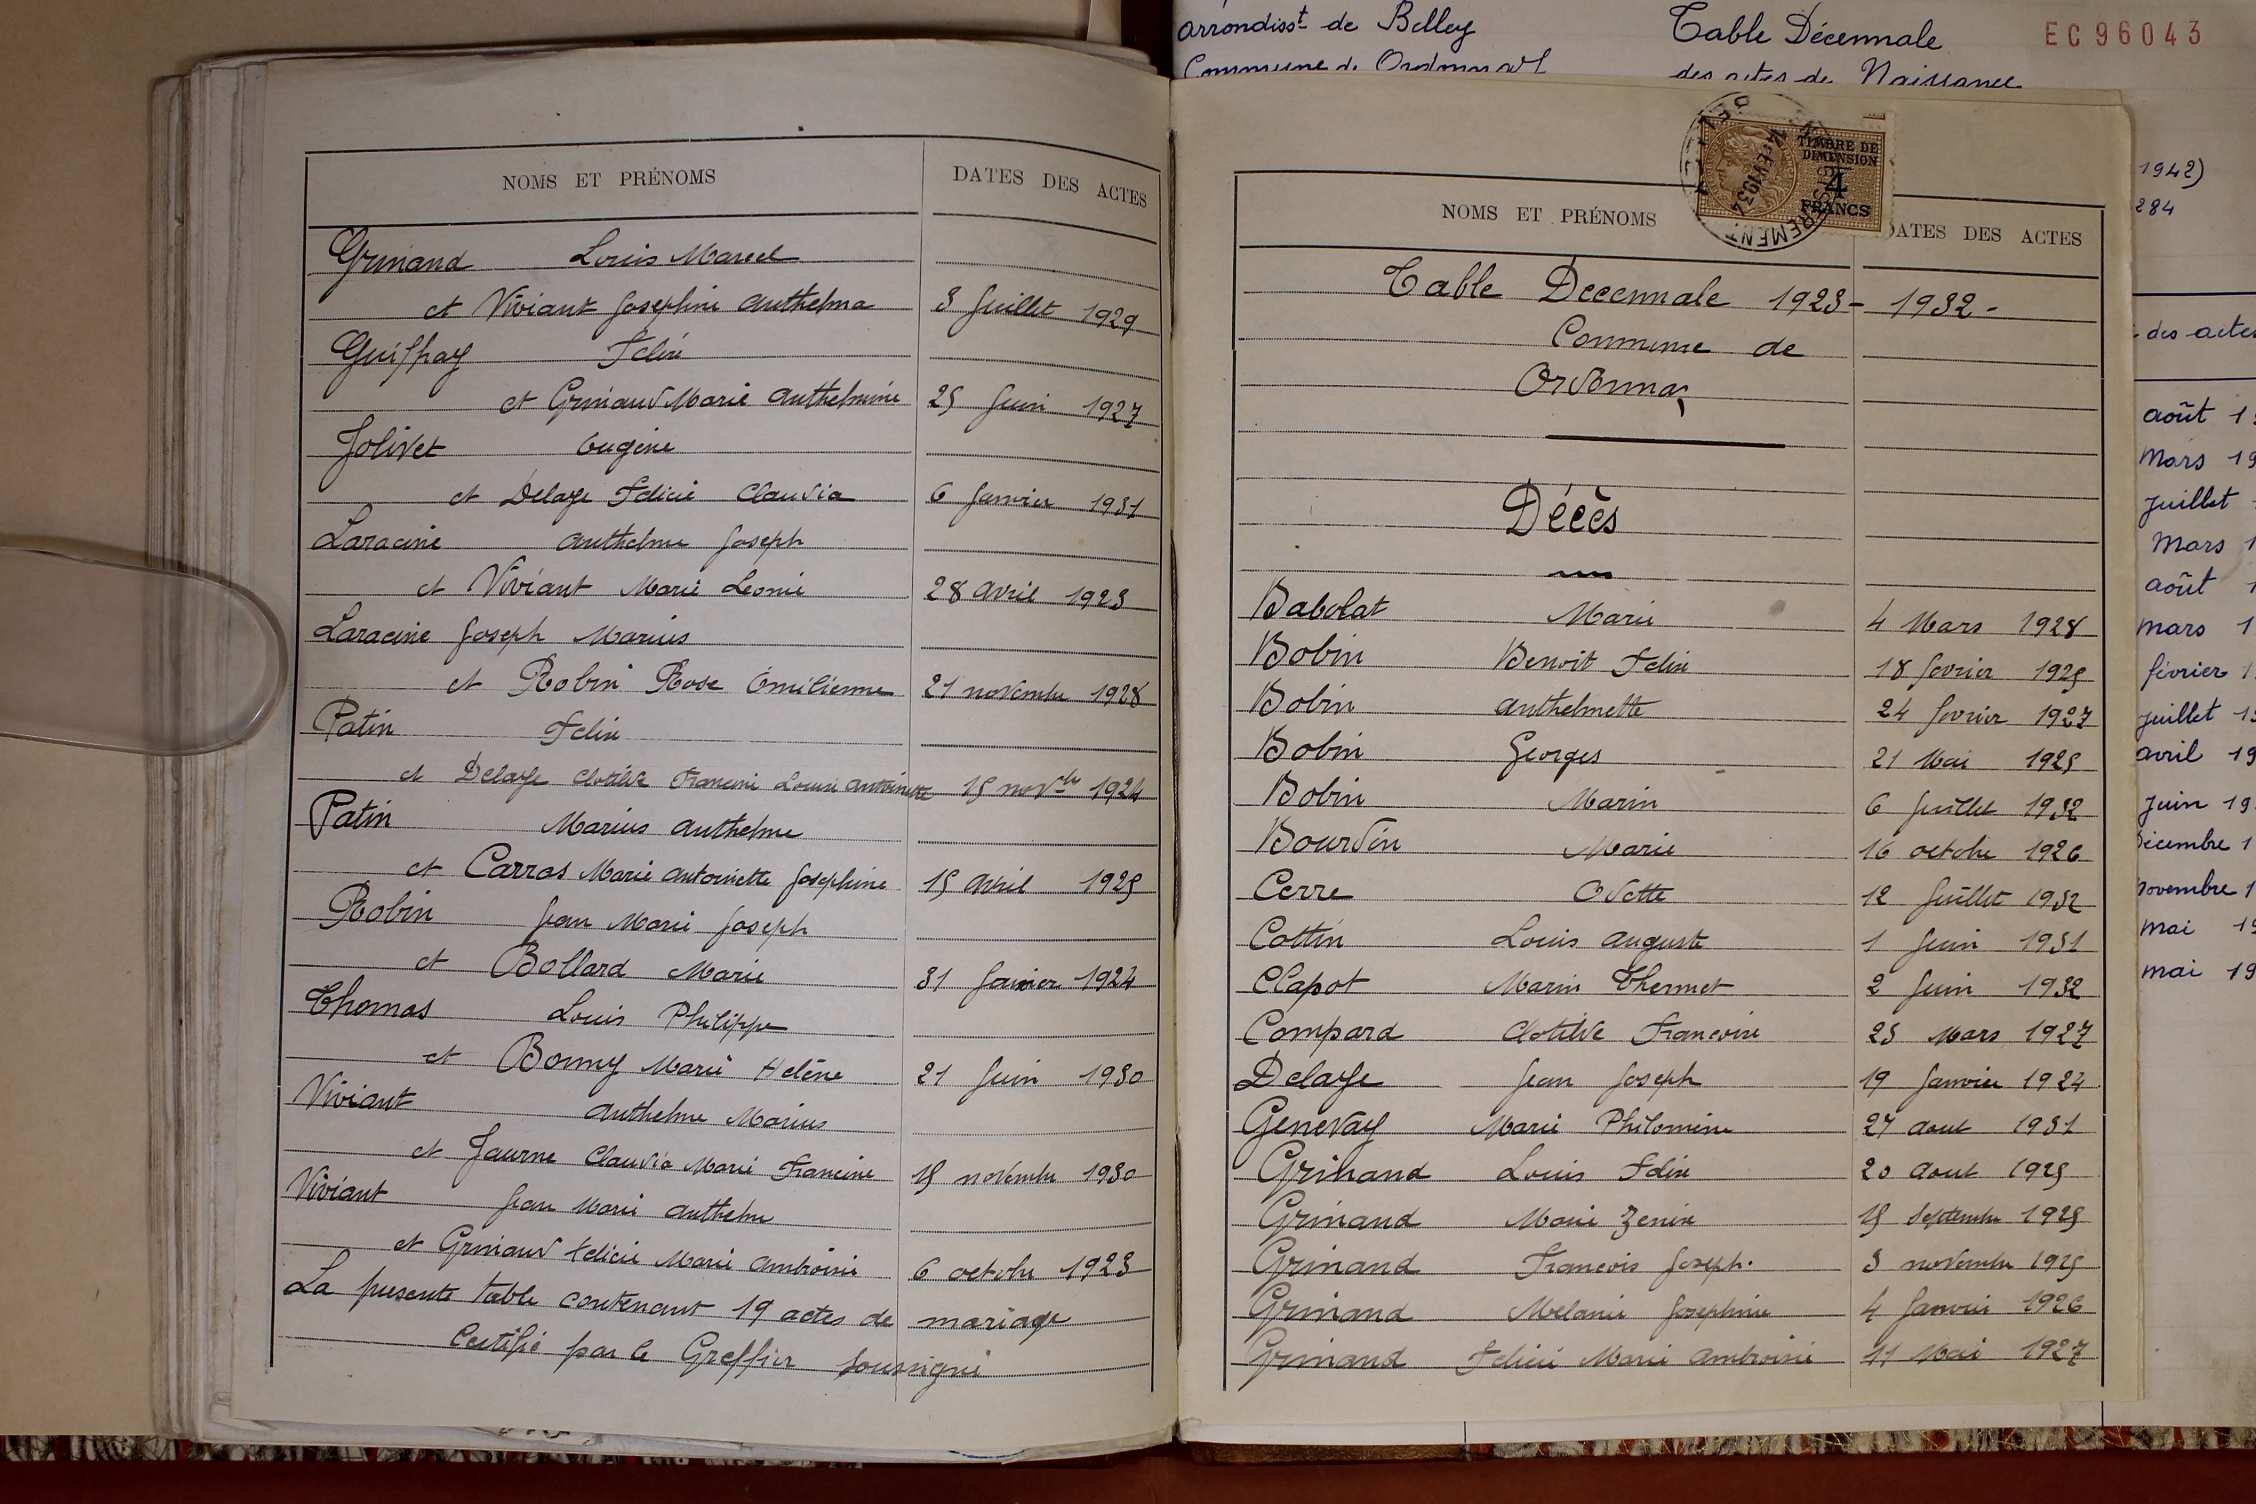 NOMS ET PRÉNOMS DATES DES ACTES
Grinand Louis Marcel
et Viviant Josephine Anthelma 3 Juillet 1929
Guiffray Félix
et Grinand Marie Anthelmine 25 Juin 1927
Jolivet Eugène
et Delaye Felicie Claudia 6 Janvier 1931
Laracine Anthelme Joseph
et Viviant Marie Leonie 28 avril 1923
Laracine Joseph Marius
et Robin Rose Emilienne 21 novembre 1928
Patin Felix
et Delaye Clotilde Francine Louise Antoinette 15 novbre 1924
Patin Marius Anthelme
et Carras Marie Antoinette Josephine 15 avril 1925
Robin Jean Marie Joseph
et Bollard Marie 31 Janvier 1924
Thomas Louis Philippe
et Bonny Marie Helène 21 Juin 1930
Viviant Anthelme Marius
et Jaurne Claudia Marie Francine 15 novembre 1930
Viviant Jean Marie Anthelme
et Grinand Felicie Marie Ambroisie 6 octobre 1923
La presente table contenant 19 actes de mariage
Certifié par le Greffier soussigné
arrondisst de Belley
Table Décennale
EC96043
Commune de Ordonnaz
des actes de Naissance
TIMBRE DE
DIMENSION
4
FRANCS
NOMS ET PRÉNOMS DATES DES ACTES
Table Decennale 1923 - 1932 -
Commune de
Ordonnaz
Décès
Babolat Marie 4 Mars 1928
Bobin Benoit Felix 18 fevrier 1925
Bobin Anthelmette 24 fevrier 1927
Bobin Georges 21 Mai 1925
Bobin Marin 6 Juillet 1932
Bourdin Marie 16 octobre 1926
Cerre Odette 12 Juillet 1932
Cottin Louis Auguste 1 Juin 1931
Clapot Marin Thermet 2 Juin 1932
Compard Clotilde Francoise 25 Mars 1927
Delaye Jean Joseph 19 Janvier 1924
Genevay Marie Philomine 27 aout 1931
Grinand Louis Felix 20 aout 1925
Grinand Marie Zenie 15 Septembre 1925
Grinand Francois Joseph. 3 novembre 1925
Grinand Melanie Josephine 4 Janvier 1926
Grinand Felicie Marie Ambroisie 11 Mai 1927
1942)
284
des actes
août 1
Mars 19
Juillet
Mars 1
août 1
mars 1
février 1
juillet 19
avril 19
juin 19
Décembre 1
novembre 1
mai 19
mai 19